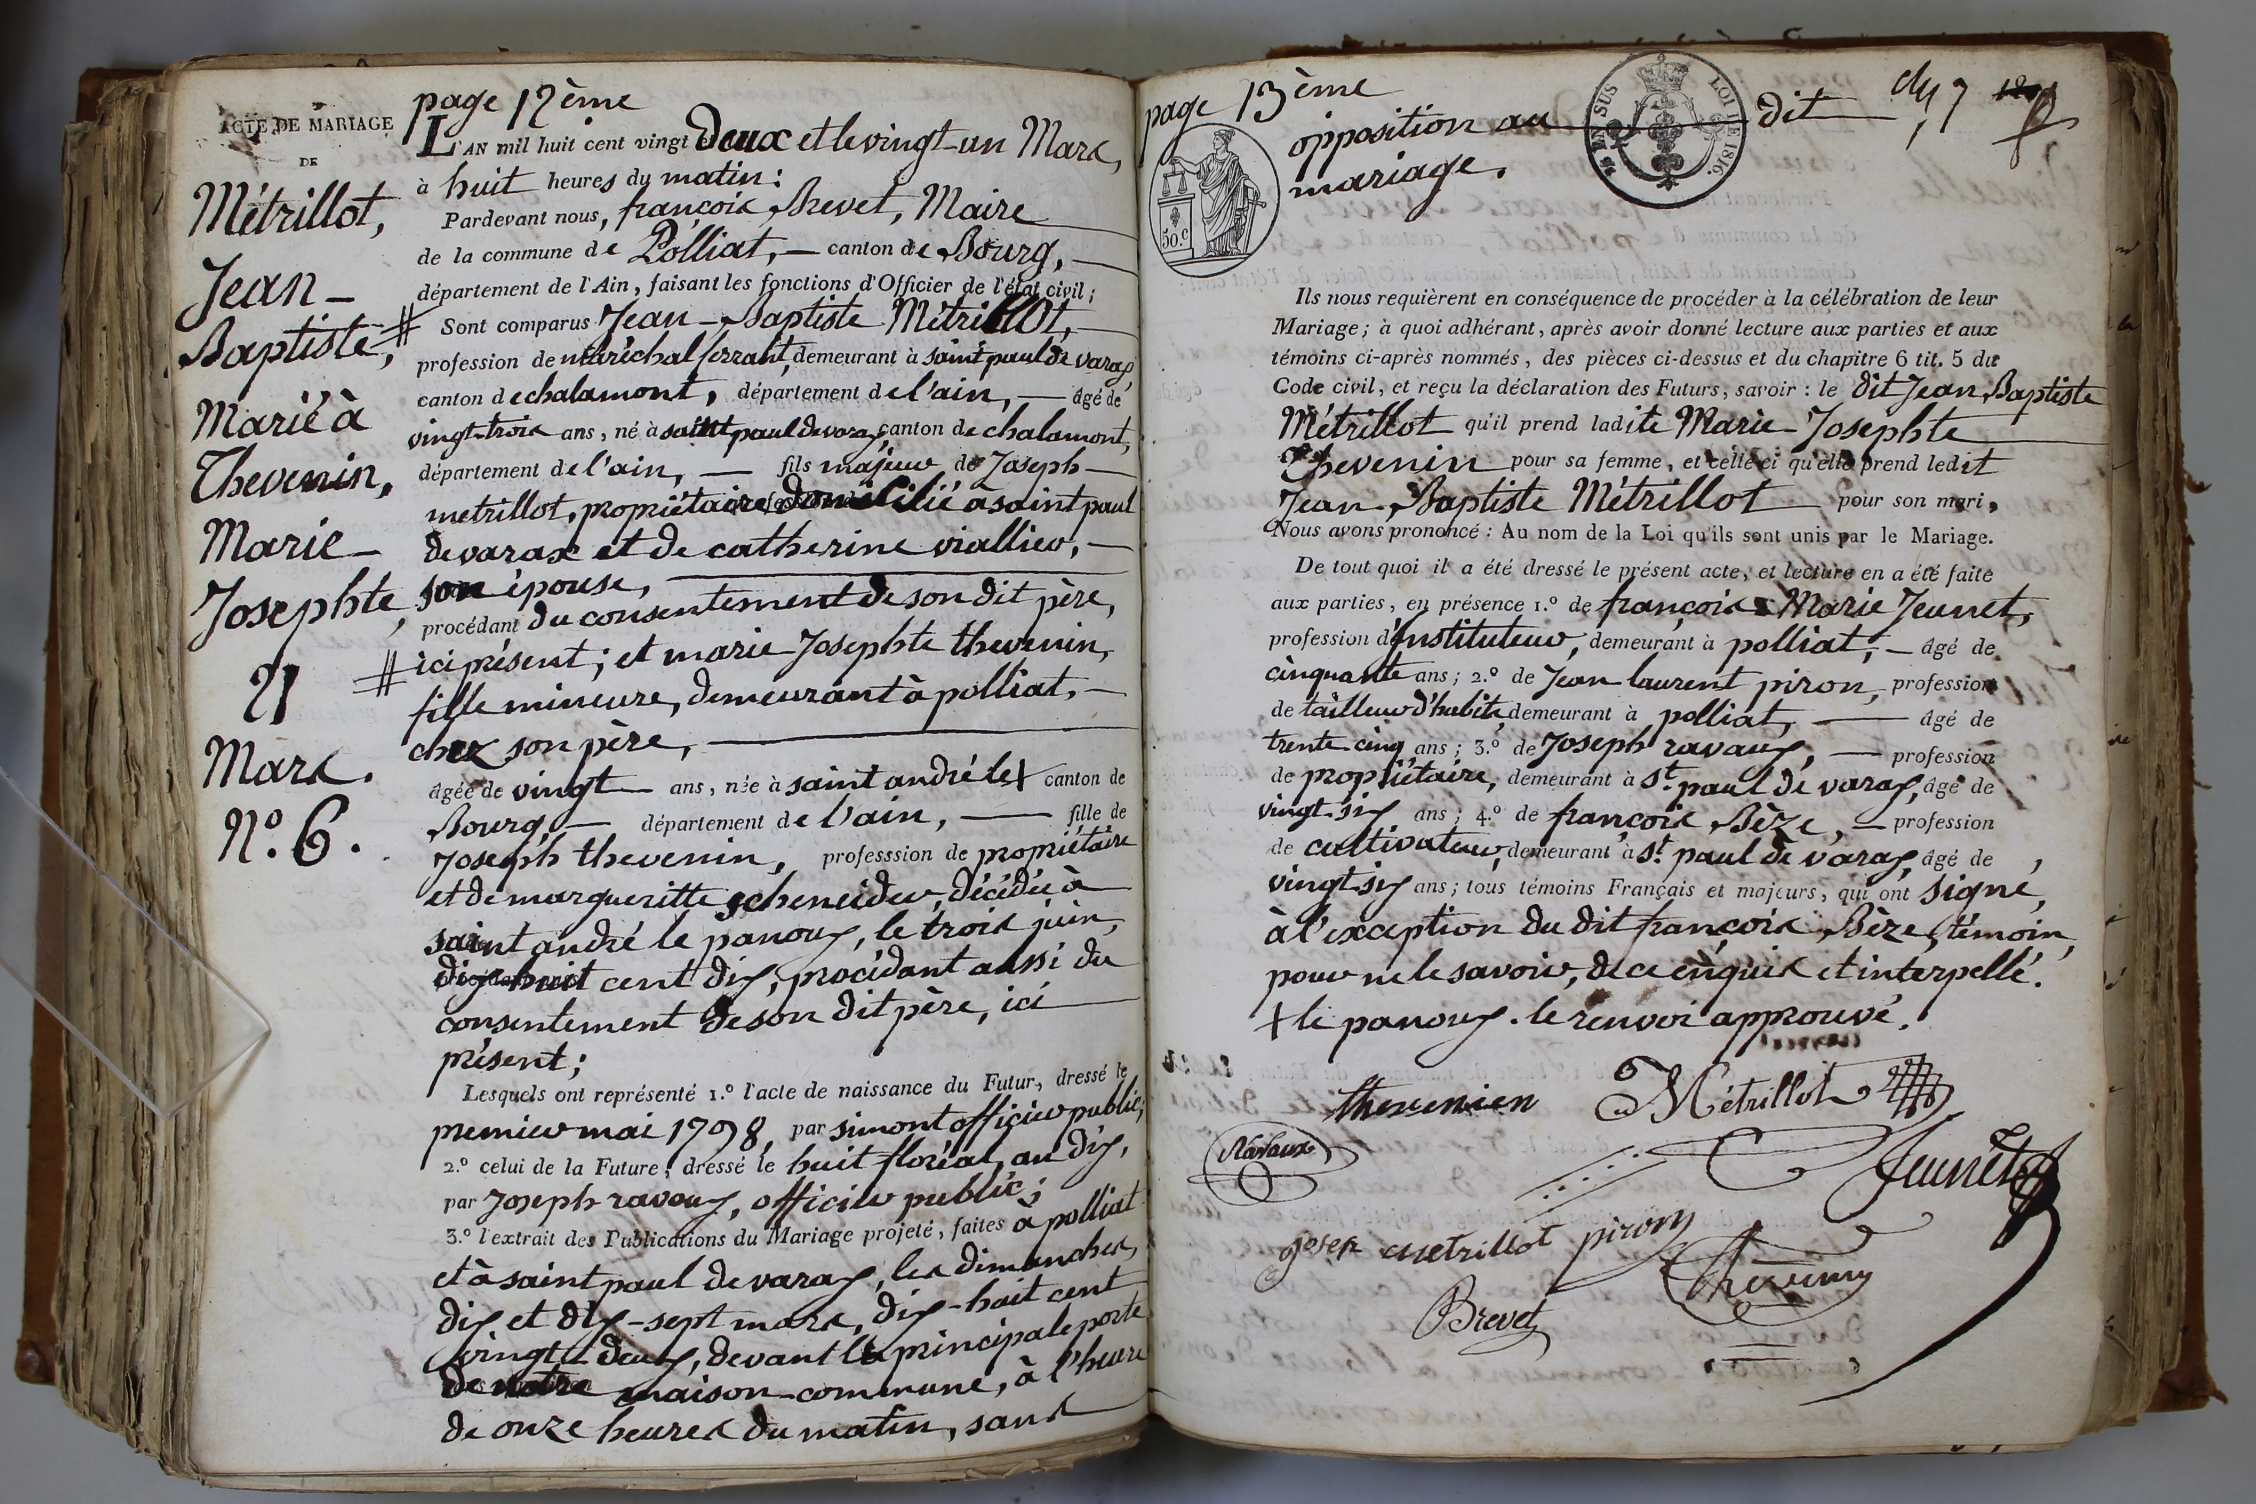 ACTE DE MARIAGE
DE
Métrillot,
Jean-
Baptiste,
Marié à
Thevenin,
Marie-
Josephte,
21
Mars.
N.º 6.
page 12ème
L'AN mil huit cent vingt deux et le vingt-un Mars,
à huit heures du matin:
Pardevant nous, françois Brevet, Maire
de la commune de Polliat, - canton de Bourg,
département de l'Ain, faisant les fonctions d'Officier de l'état civil;
# Sont comparus Jean-Baptiste Métrillot,
profession de maréchal ferrant, demeurant à saint paul de varax,
canton de chalamont, département de l'ain, - âgé de
vingt-trois ans, né à saint paul de varax, canton de chalamont,
département de l'ain, - fils majeur de Joseph
metrillot, propriétaire domicilié à saint paul
de varax et de catherine viallier,
son épouse,
procédant du consentement de son dit père,
# ici présent; et marie Josephte thevenin,
fille mineure, demeurant à polliat,
chez son père,
âgée de vingt ans, née à saint andré le + canton de
Bourg, - département de l'ain, - fille de
Joseph thevenin, professsion de propriétaire
et de margueritte scheneider, décédée à
saint andré le panoux, le trois juin,
dix-huit cent dix, procédant aussi du
consentement de son dit père, ici
présent;
Lesquels ont représenté 1.º l'acte de naissance du Futur, dressé le
premier mai 1798, par simont officier public;
2.º celui de la Future, dressé le huit floréal, an dix,
par Joseph ravoux, officier public;
3.º l'extrait des Publications du Mariage projeté, faites à polliat
et à saint paul de varax, les dimanches,
dix et dix-sept mars, dix-huit cent
vingt-deux, devant la principale porte
de notre maison-commune, à l'heure
de onze heures du matin, sans
page 13ème
opposition au dit
mariage.
50.C
EN SUS
LOI DE 1816.
Ils nous requièrent en conséquence de procéder à la célébration de leur
Mariage; à quoi adhérant, après avoir donné lecture aux parties et aux
témoins ci-après nommés, des pièces ci-dessus et du chapitre 6 tit. 5 du
Code civil, et reçu la déclaration des Futurs, savoir: le dit Jean Baptiste
Métrillot qu'il prend ladite Marie-Josephte
Thevenin pour sa femme, et celle-ci qu'elle prend ledit
Jean-Baptiste Métrillot pour son mari,
Nous avons prononcé: Au nom de la Loi qu'ils sont unis par le Mariage.
De tout quoi il a été dressé le présent acte, et lecture en a été faite
aux parties, en présence 1.º de françois Marie Jeunet,
profession d'instituteur, demeurant à polliat, - âgé de
cinquante ans; 2.º de Jean laurent piron, profession
de tailleur d'habits, demeurant à polliat, âgé de
trente cinq ans; 3.º de Joseph ravaux, - profession
de propriétaire, demeurant à st. paul de varax, âgé de
vingt-six ans; 4.º de françois Bèze, - profession
de cultivateur, demeurant à st. paul de varax, âgé de
vingt-six ans; tous témoins Français et majeurs, qui ont signé,
à l'exception du dit françois Bèze, témoin,
pour ne le savoir, de ce enquis et interpellé.
+ le panoux. le renvoi approuvé.
thevenien Métrillot
Ravaux Jeunet
Josep metrillot piron
Brevet Thevenin